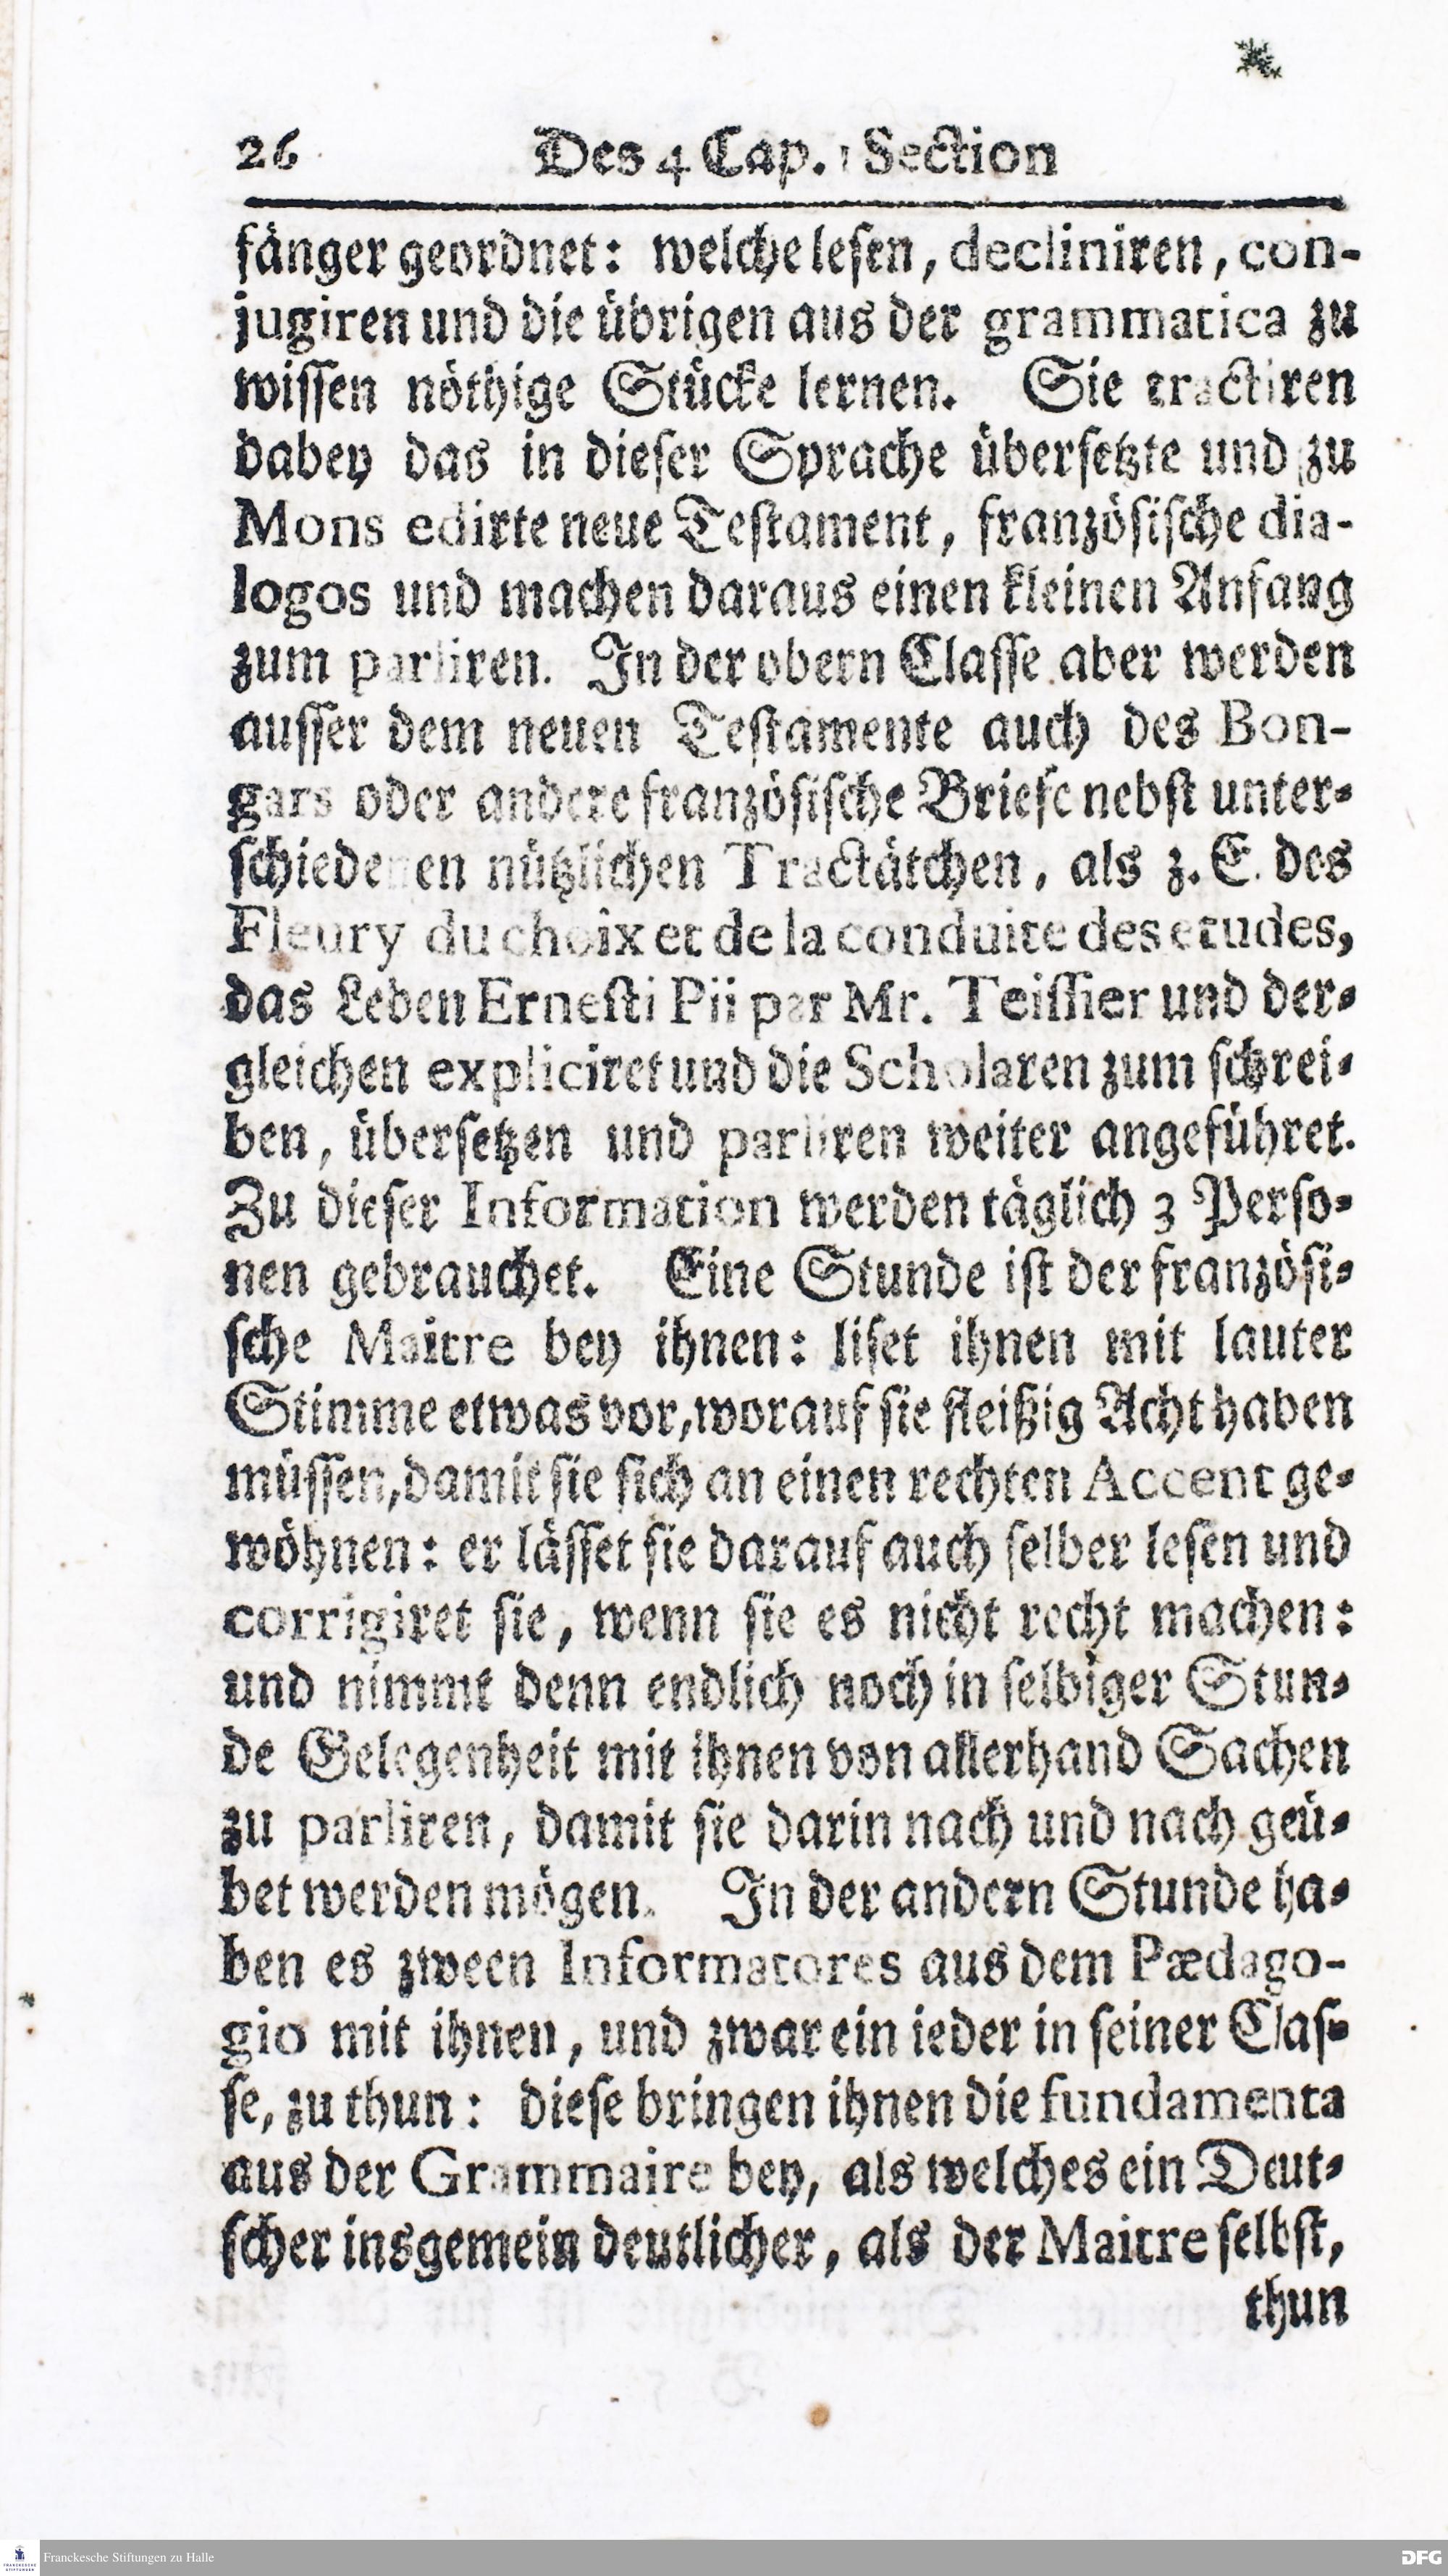 26 Des 4 Cap. 1 Section
fänger geordnet: welche lesen, decliniren, con-
jugiren und die übrigen aus der grammatica zu
wissen nöthige Stücke lernen. Sie tractiren
dabey das in dieser Sprache übersetzte und zu
Mons edirte neue Testament, französische dia-
logos und machen daraus einen kleinen Anfang
zum parliren. In der obern Classe aber werden
ausser dem neuen Testamente auch des Bon-
gars oder andere französische Briefe nebst unter-
schiedenen nützlichen Tractätchen, als z. E. des
Fleury du choix et de la conduite des etudes,
das Leben Ernesti Pii par Mr. Teissier und der-
gleichen expliciret und die Scholaren zum schrei-
ben, übersetzen und parliren weiter angeführet.
Zu dieser Information werden täglich 3 Perso-
nen gebrauchet. Eine Stunde ist der französi-
sche Maitre bey ihnen: liset ihnen mit lauter
Stimme etwas vor, worauf sie fleißig Acht haben
müssen, damit sie sich an einen rechten Accent ge-
wöhnen: er lässet sie darauf auch selber lesen und
corrigiret sie, wenn sie es nicht recht machen:
und nimmt denn endlich noch in selbiger Stun-
de Gelegenheit mit ihnen von allerhand Sachen
zu parliren, damit sie darin nach und nach geü-
bet werden mögen. In der andern Stunde ha-
ben es zween Informatores aus dem Pædago-
gio mit ihnen, und zwar ein ieder in seiner Clas-
se, zu thun: diese bringen ihnen die fundamenta
aus der Grammaire bey, als welches ein Deut-
scher insgemein deutlicher, als der Maitre selbst,
thun
Franckesche Stiftungen zu Halle
DFG